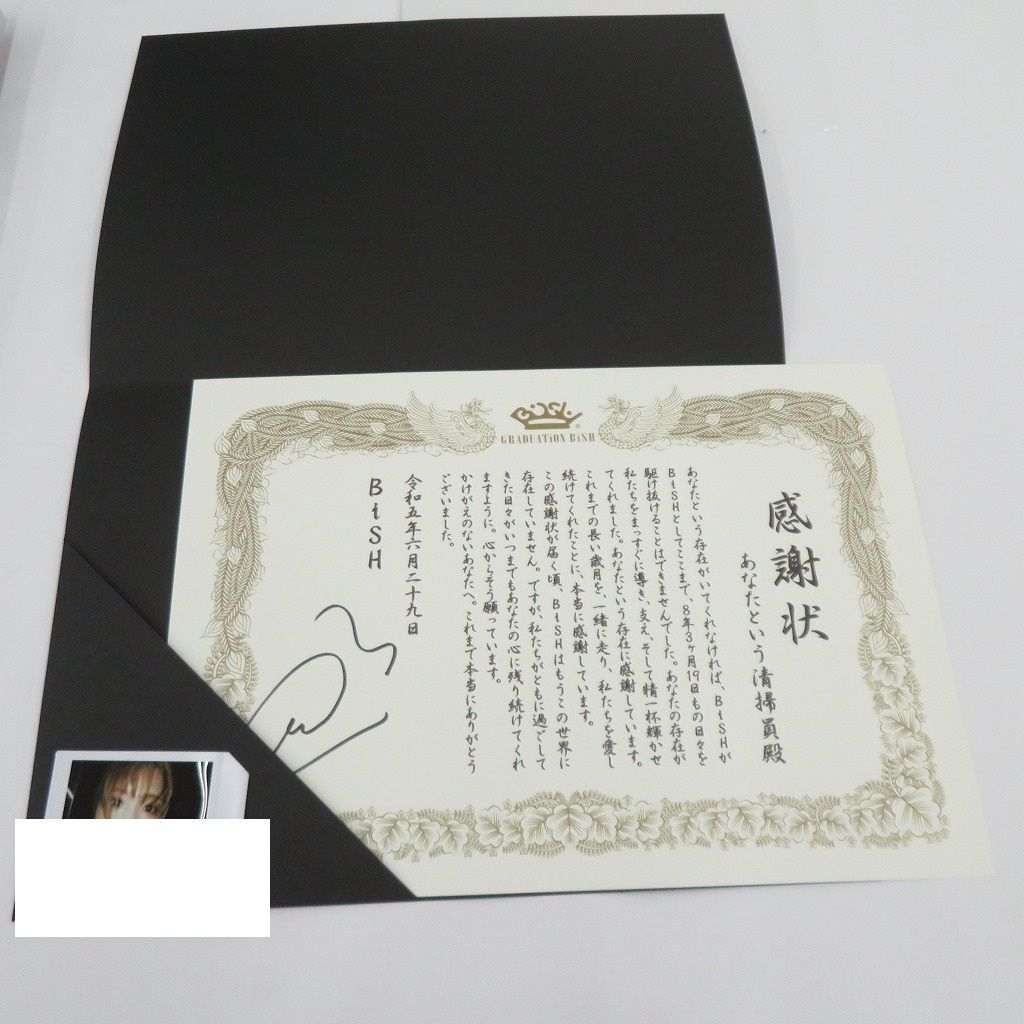 BiSH
GRADUATiON BiSH
感謝状
あなたという清掃員殿
あなたという存在がいてくれなければ、BiSHが
BiSHとしてここまで、8年3ヶ月19日もの日々を
駆け抜けることはできませんでした。あなたの存在が
私たちをまっすぐに導き、支え、そして精一杯輝かせ
てくれました。あなたという存在に感謝しています。
これまでの長い歳月を、一緒に走り、私たちを愛し
続けてくれたことに、本当に感謝しています。
この感謝状が届く頃、BiSHはもうこの世界に
存在していません。ですが、私たちがともに過ごして
きた日々がいつまでもあなたの心に残り続けてくれ
ますように。心からそう願っています。
かけがえのないあなたへ。これまで本当にありがとう
ございました。
令和五年六月二十九日
BiSH